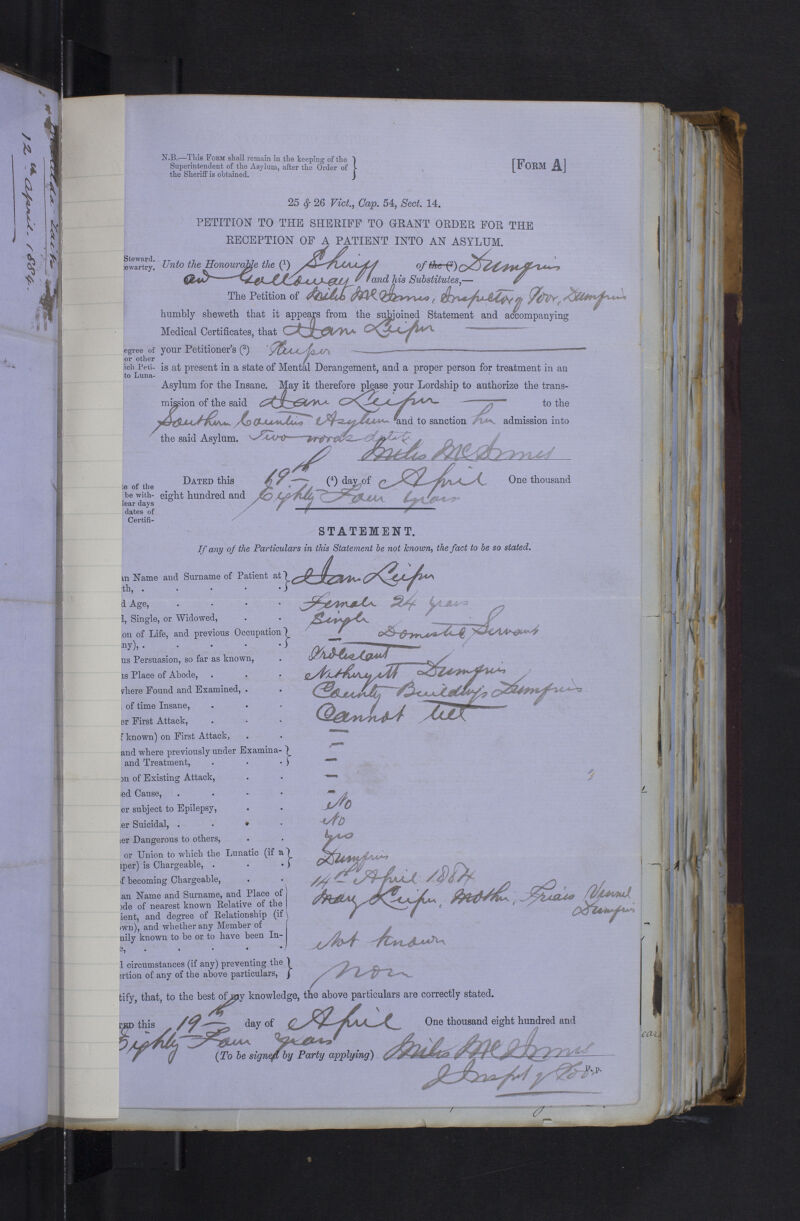 12th April. 1884.
N.B.—This Form shall remain in the keeping of the
Superintendent of the Asylum, after the Order of
the Sheriff is obtained.
[Form A]
25 & 26 Vict., Cap. 54, Sect. 14.
PETITION TO THE SHERIFF TO GRANT ORDER FOR THE
RECEPTION OF A PATIENT INTO AN ASYLUM.
Steward.
ewartry.
Unto the Honourable the (¹) Sheriff of the (²) Dumfries
and Galloway and his Substitutes,—
The Petition of Miles McInnes, Inspector of Poor, Dumfries
humbly sheweth that it appears from the subjoined Statement and accompanying
Medical Certificates, that Jane Leiper
egree of
or other
ich Peti-
to Luna-
your Petitioner's (³) Pauper
is at present in a state of Mental Derangement, and a proper person for treatment in an
Asylum for the Insane. May it therefore please your Lordship to authorize the trans-
mission of the said Jane Leiper to the
Southern Counties Asylum and to sanction her admission into
the said Asylum. Two words delete
Miles McInnes
e of the
be with-
lear days
dates of
Certifi-
Dated this 19th (⁴) day of April One thousand
eight hundred and Eighty Four years
STATEMENT.
If any of the Particulars in this Statement be not known, the fact to be so stated.
an Name and Surname of Patient at
th, . Jane Leiper
d Age, Female 24 years
l, Single, or Widowed, Single
on of Life, and previous Occupation
ny), . — Domestic Servant
us Persuasion, so far as known, Protestant
us Place of Abode, Dumfries
where Found and Examined, County Buildings Dumfries
of time Insane, Cannot tell
er First Attack,
f known) on First Attack, —
and where previously under Examina-
and Treatment, —
on of Existing Attack, —
ed Cause, —
er subject to Epilepsy, No
er Suicidal, No
er Dangerous to others, yes
or Union to which the Lunatic (if a
uper) is Chargeable, Dumfries
of becoming Chargeable, 14th April 1884
an Name and Surname, and Place of
de of nearest known Relative of the
ient, and degree of Relationship (if
wn), and whether any Member of
mily known to be or to have been In-
e,
Mary Leiper, Mother, Friars Vennel
Dumfries
Not known
l circumstances (if any) preventing the
rtion of any of the above particulars, None
tify, that, to the best of my knowledge, the above particulars are correctly stated.
ted this 19th day of April One thousand eight hundred and
Eighty Four years
(To be signed by Party applying) Miles McInnes
Inspr of Poor